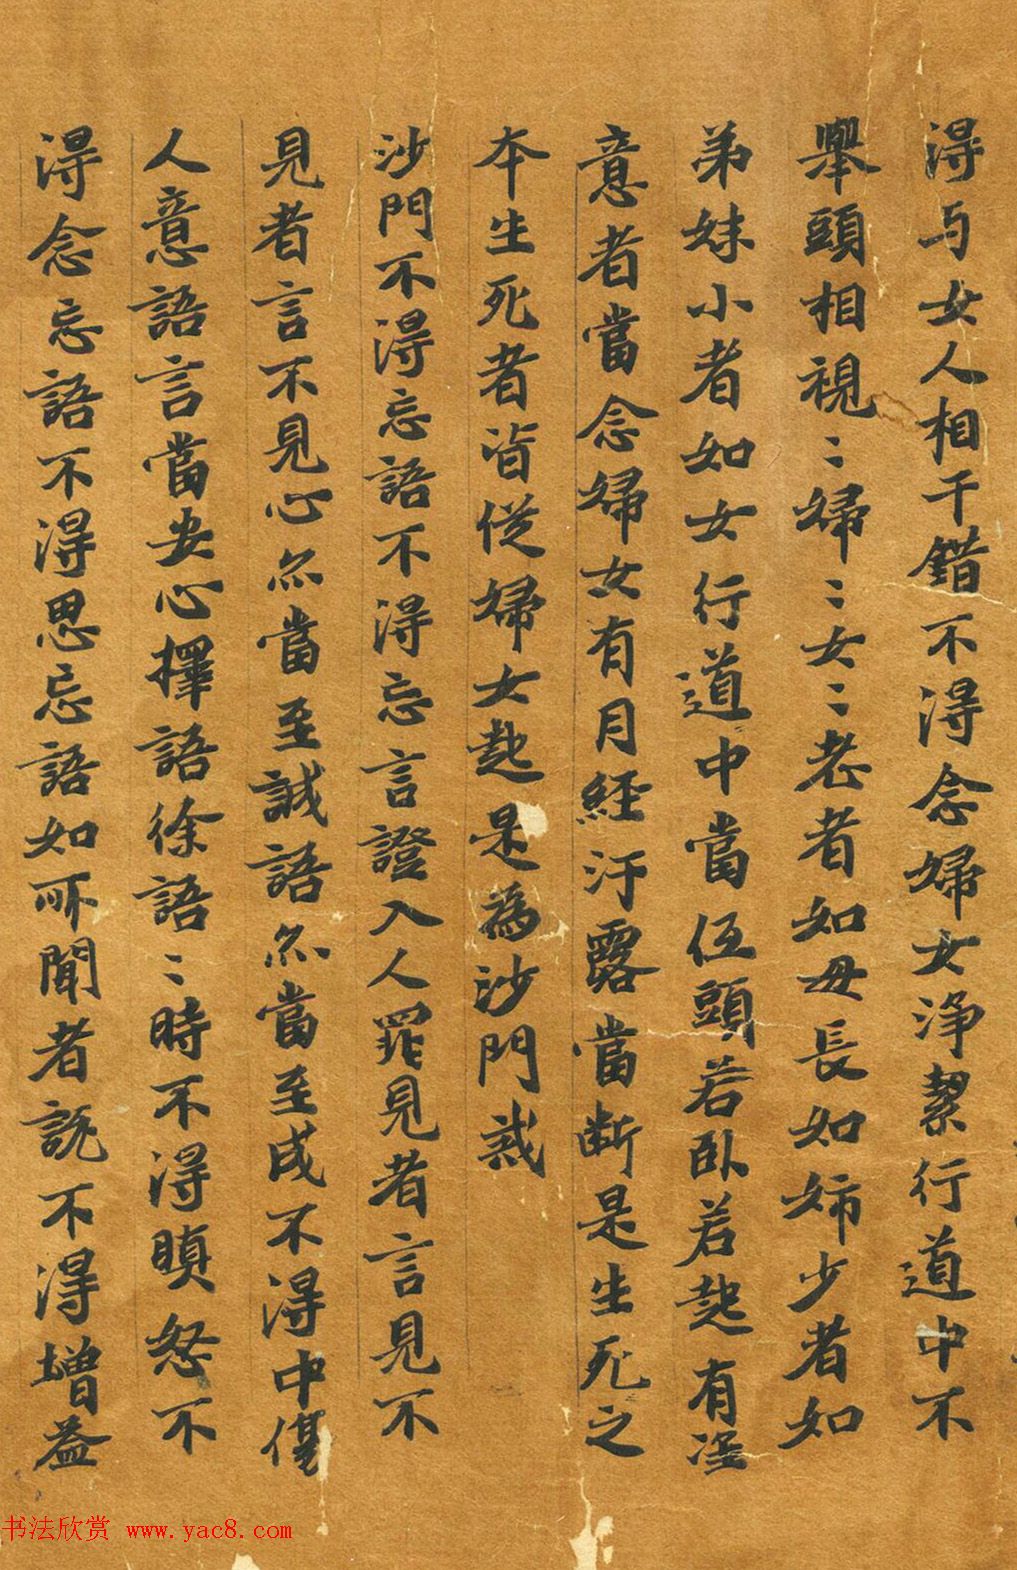 得与女人相干錯不得念婦女淨潔行道中不
舉頭相視〻婦〻女〻老者如母長如姊少者如
弟妹小者如女行道中當伍頭若臥若起有婬
意者當念婦女有月經汙露當断是生死之
本生死者皆從婦女起是為沙門戒
沙門不得忘語不得忘言證入人罪見者言見不
見者言不見心亦當至誠語亦當至成不得中傷
人意語言當安心擇語徐語〻時不得瞋怒不
得念忘語不得思忘語如所聞者説不得增益
书法欣赏 www.yac8.com